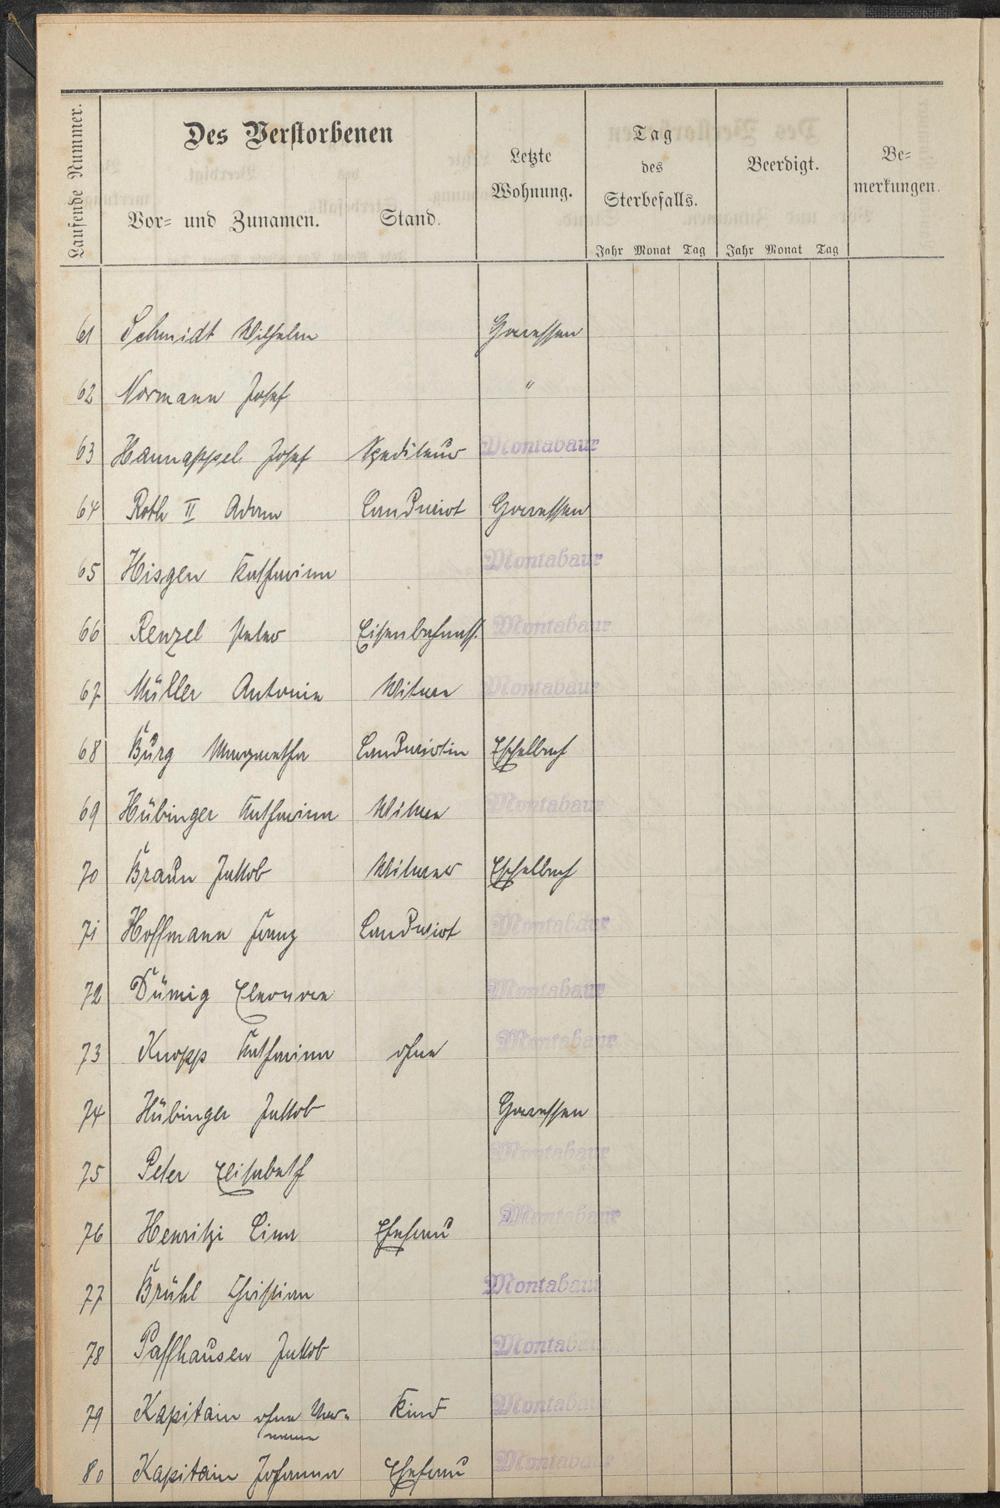 Laufende Nummer.
Des Verstorbenen
Vor= und Zunamen. Stand.
Letzte
Wohnung.
Tag
des
Sterbefalls.
Beerdigt.
Be=
merkungen.
Jahr Monat Tag Jahr Monat Tag
61 Schmidt Wilhelm
62 Normann Josef "
63 Hannappel Josef Spediteur Montabaur
64 Roth II Adam Landwirt
65 Hisgen Katharina Montabaur
66 Renzel Peter Montabaur
67 Müller Antonie Witwe Montabaur
68 Burg Margaretha Landwirtin Eschelbach
69 Hübinger Katharina Witwe Montabaur
70 Braun Jakob Witwer Eschelbach
71 Hoffmann Franz Landwirt Montabaur
72 Dümig Eleonore Montabaur
73 Knopp Katharina ohne Montabaur
74 Hübinger Jakob
75 Peter Elisabeth Montabaur
76 Henritzi Lina Ehefrau Montabaur
77 Brühl Christian Montabaur
78 Paffhausen Jakob Montabaur
79 Kapitain ohne Vor= Kind Montabaur
name
80 Kapitain Johanna Ehefrau Montabaur